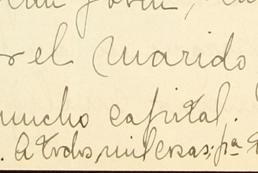 el marido
mucho capital.
. A todos mil cosas; pª